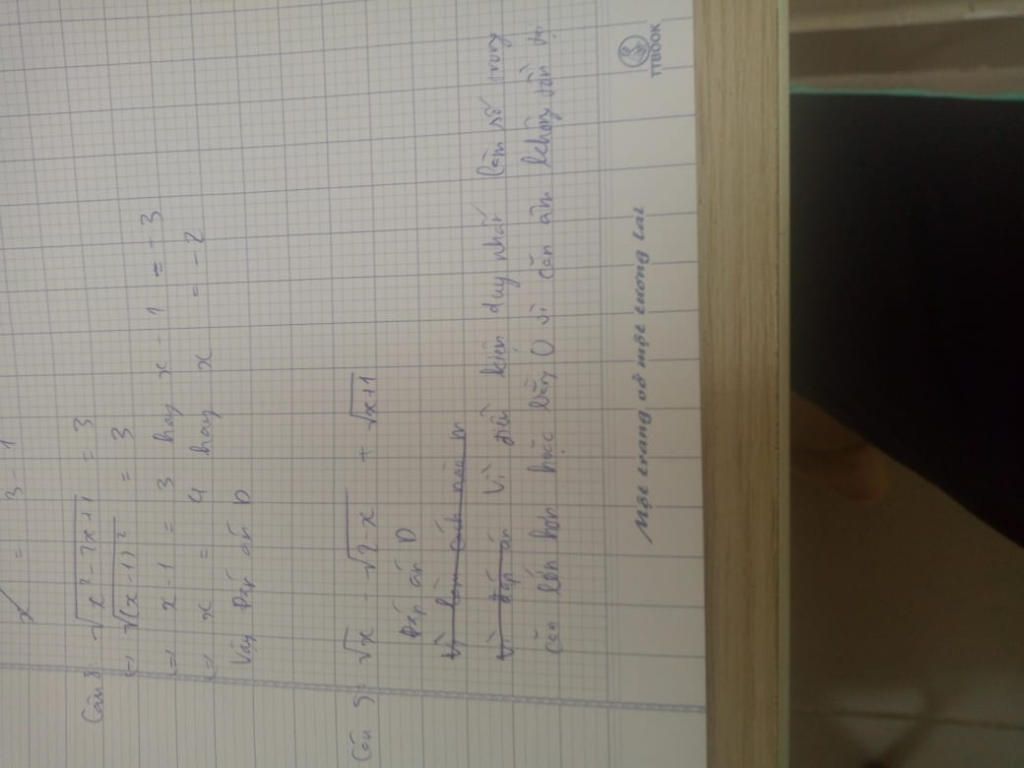 x = 3 - 1
Câu 8 √x² - 2x + 1 = 3
(=) √(x - 1)² = 3
(=) x - 1 = 3 hay x - 1 = -3
(=) x = 4 hay x = -2
Vậy Đáp án D
Câu 9: √x - √2-x + √x+1
Đáp án D
Vì làm
Vì đáp án Vì điều kiện duy nhất làm số trong
căn lớn hơn hoặc bằng 0 vì căn âm không tồn tại
Một trang vở một tương lai
TTBOOK